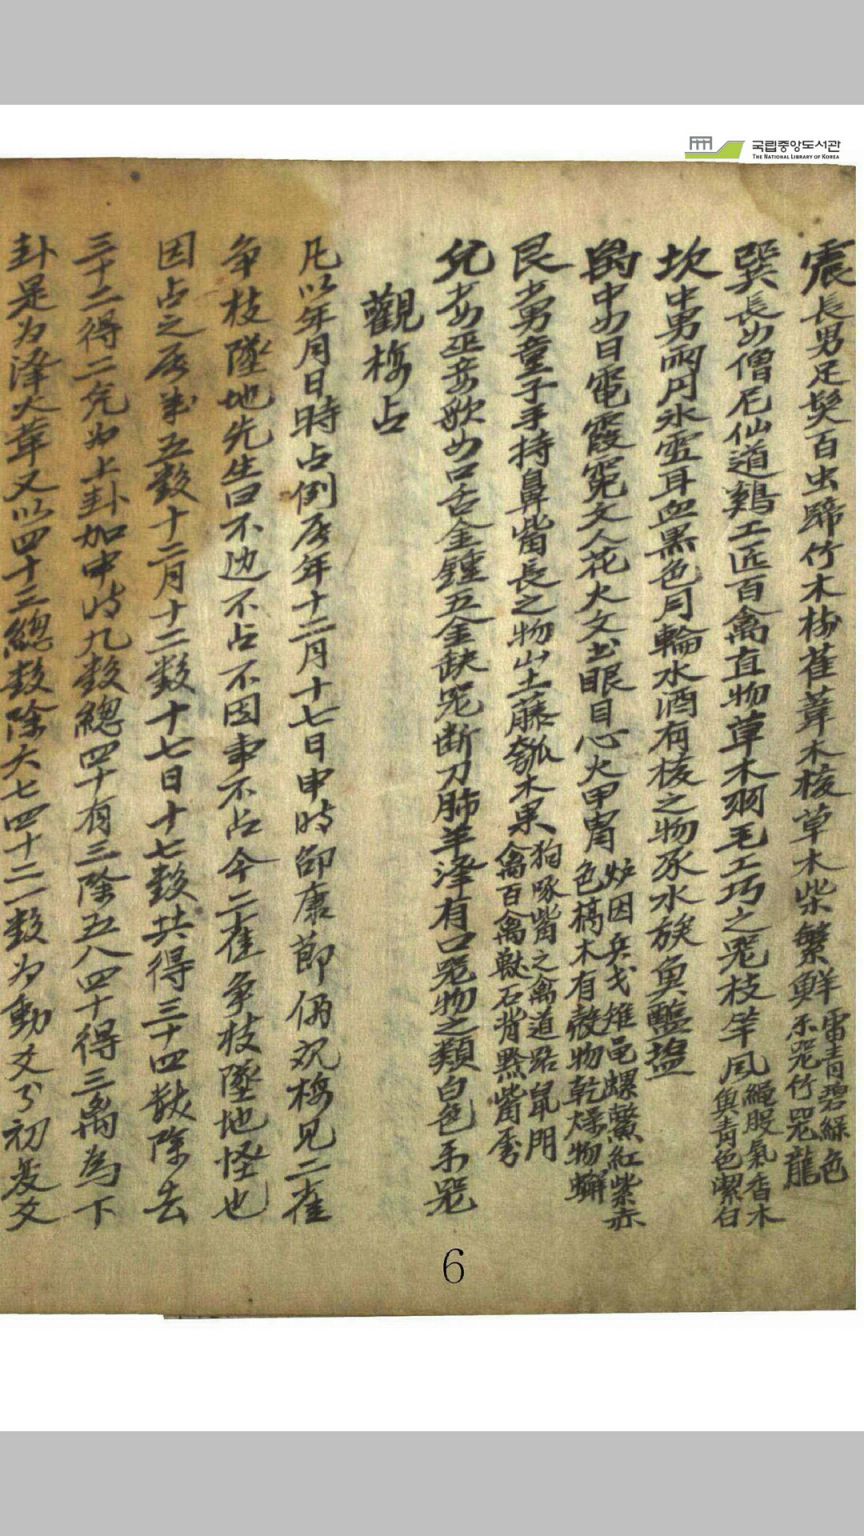 국립중앙도서관
THE NATIONAL LIBRARY OF KOREA
震長男足髮百虫蹄竹木梅萑葦木核草木柴繁鮮雷青碧綠色
禾器竹器龍
巽長女僧尼仙道鷄工匠百禽直物草木羽毛工巧之器枝竿風繩股氣香木
臭青色潔白
坎中男雨月氷雪耳血黑色月輪水酒有核之物豕水族魚醢塩
离中女日電霞霓文人花火文书眼目心火甲冑炉因兵戈雉黽螺鱉紅紫赤
色槁木有殼物乾燥物蠏
艮少男童子手持鼻觜長之物山土藤瓠木果狗啄觜之禽道路鼠門
禽百禽獸石背黔觜
兌少女巫妾歌女口舌金鍾五金缺器断刀肺羊澤有口器物之類白色禾器
觀梅占
凡以年月日時占倒辰年十二月十七日申時邵康節偶观梅見二雀
争枝墜地先生曰不动不占不因事不占今二雀争枝墜地怪也
因占之辰年五數十二月十二數十七日十七數共得三十四數除去
三十二得二兌为上卦加申时九數總四十有三除五八四十得三离為下
卦是为澤火革又以四十三總數除六七四十二一數为動爻乃初爻
6